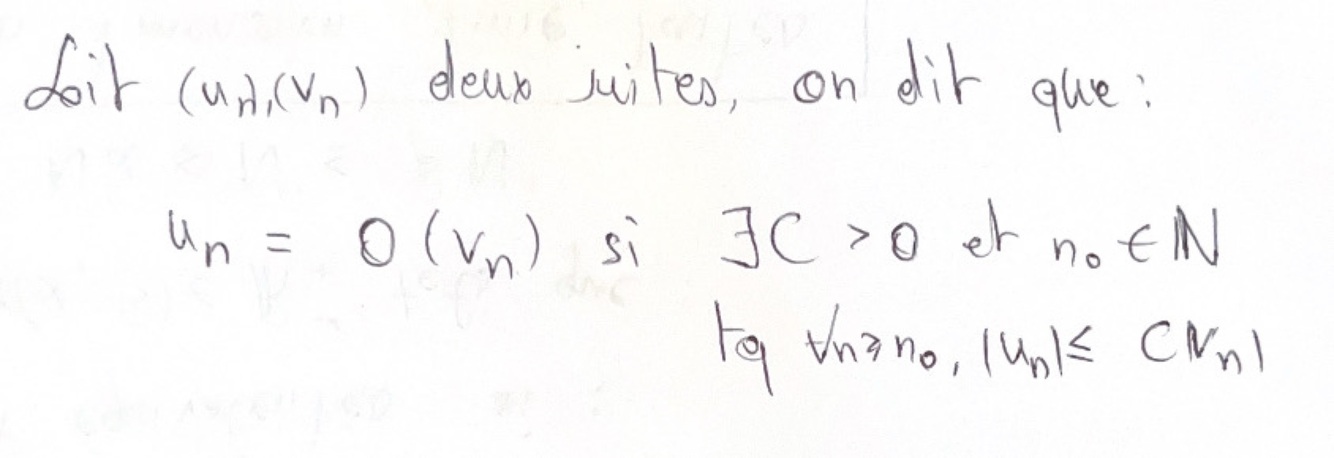 Soit (un),(vn) deux suites, on dit que :
un = O(vn) si ∃C > 0 et n₀ ∈ ℕ
tq ∀n ≥ n₀, |un| ≤ C|vn|